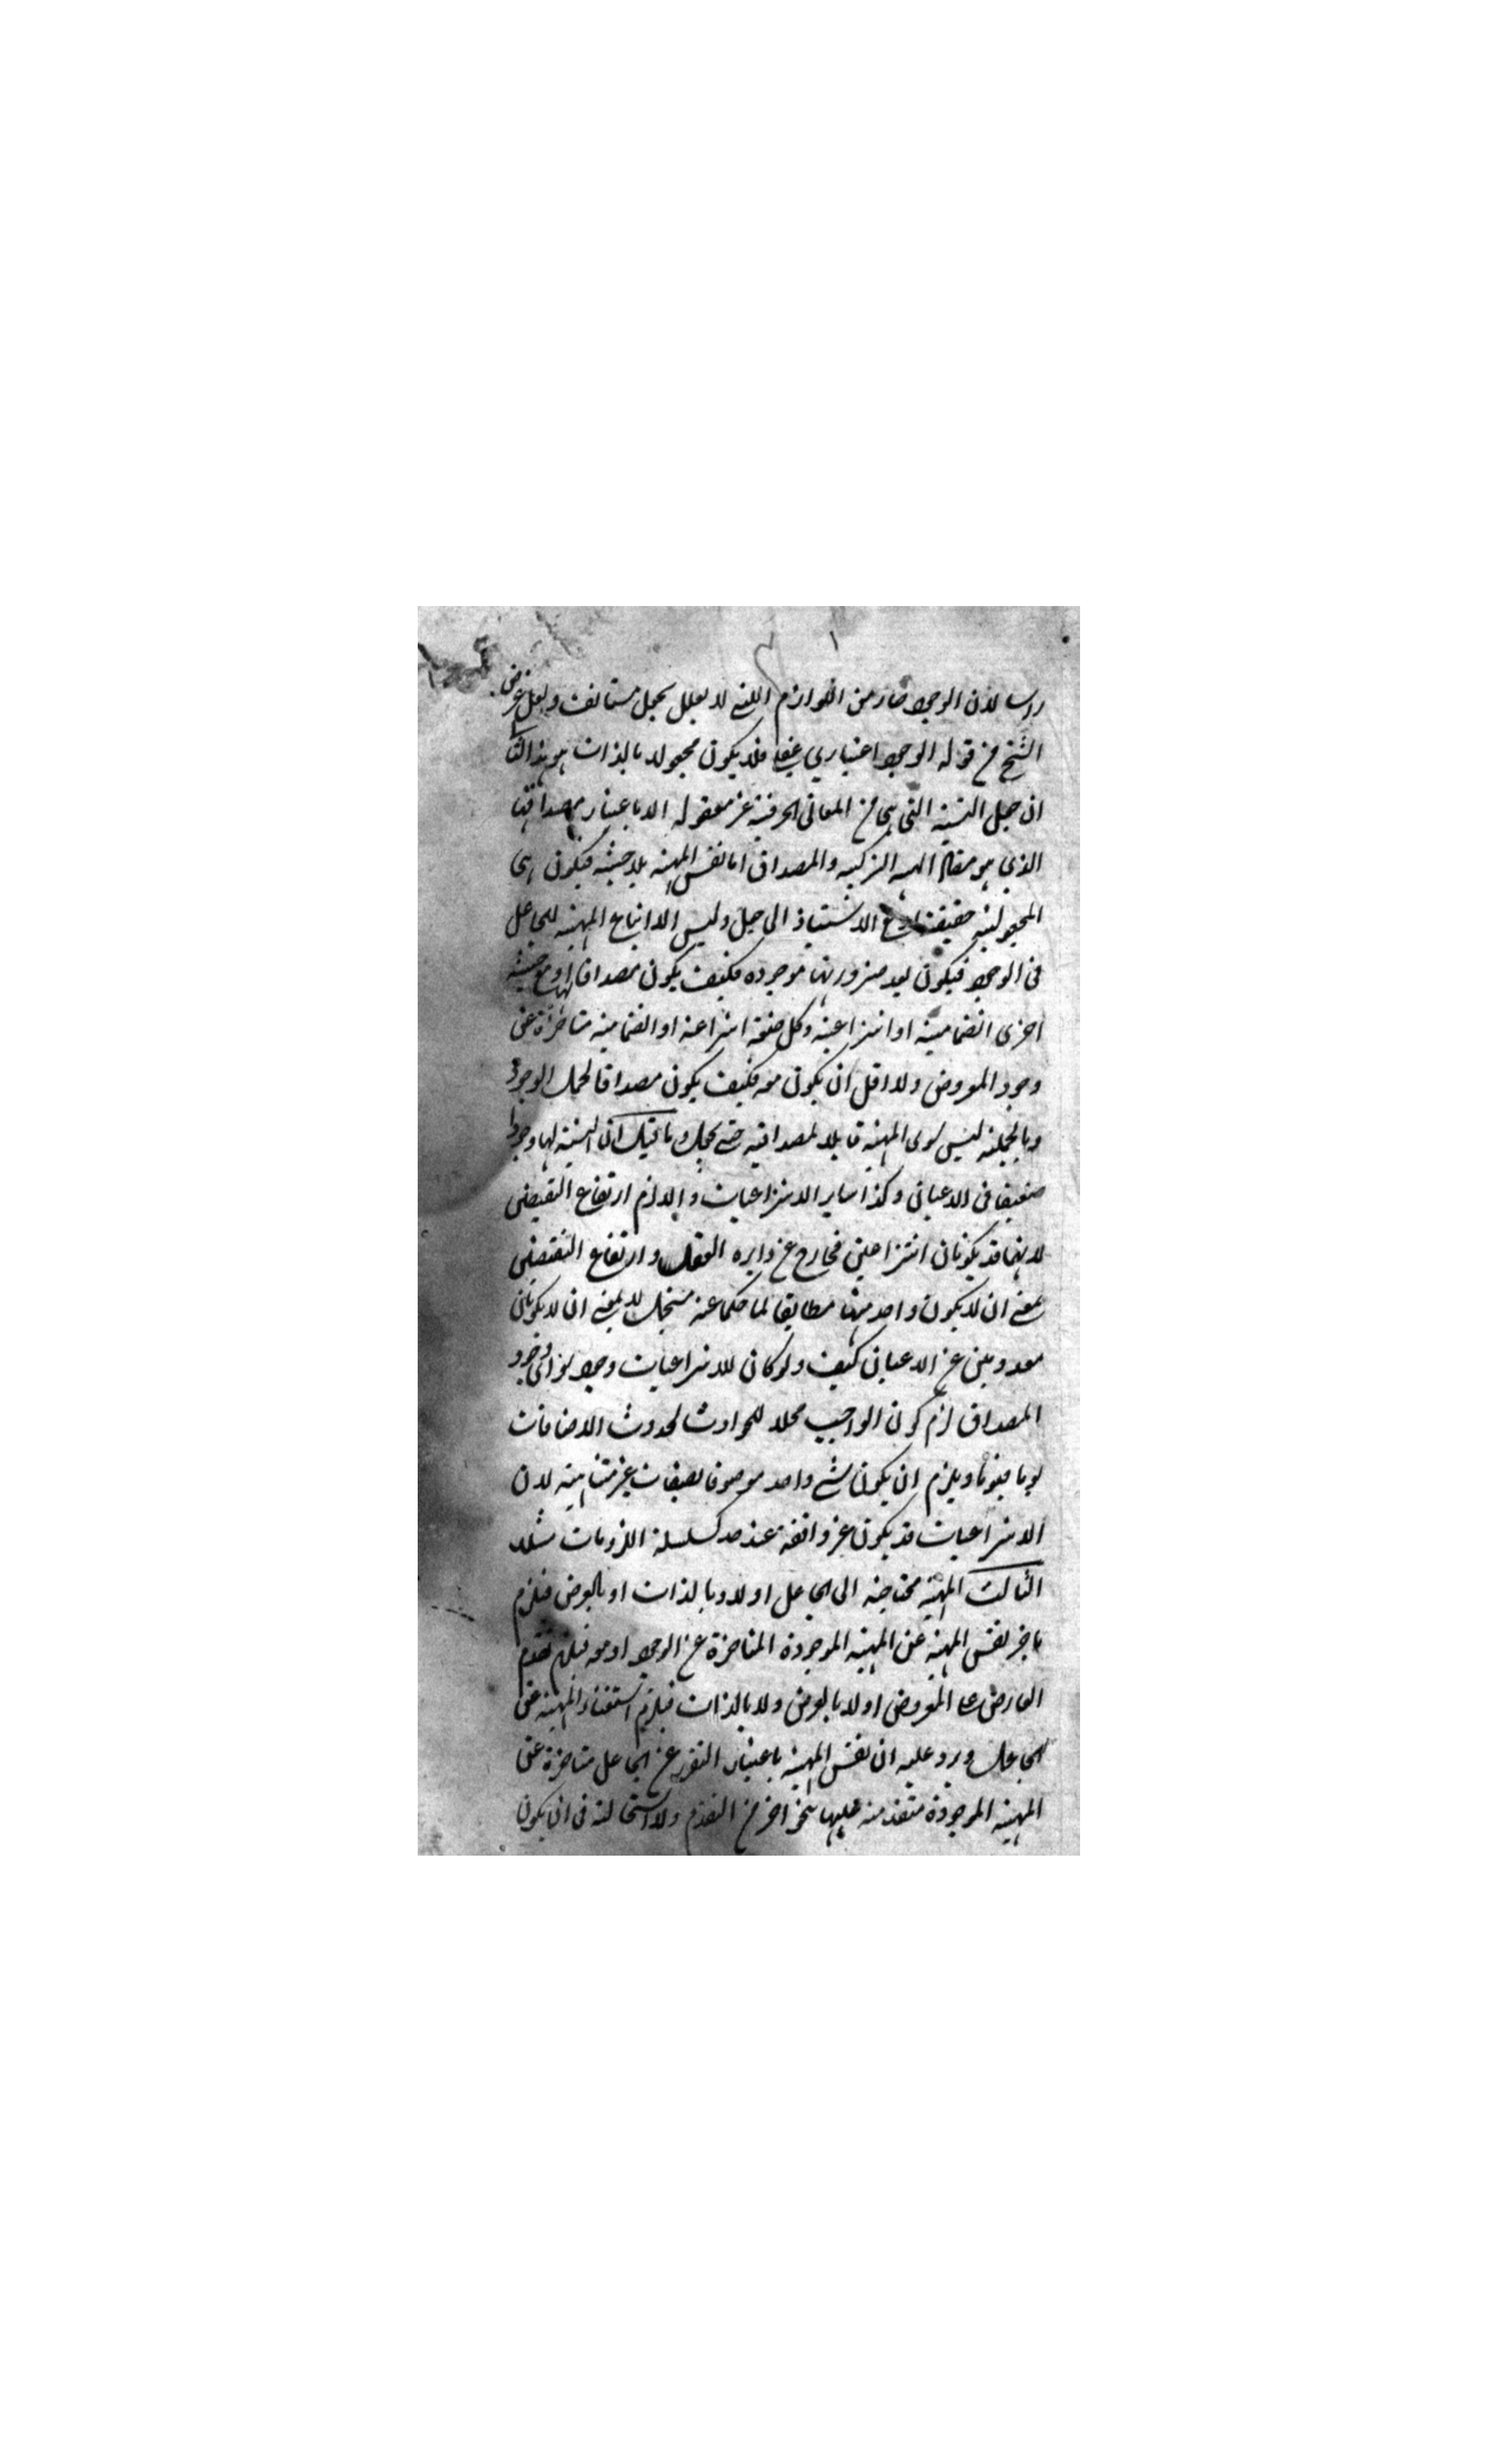 راسا لان الوجود صار من اللوازم التي لا يعلل بجعل مستانف ولعل غرض
الشيخ من قوله الوجود اعتباري عقلي فلا يكون مجعولا بالذات هو هذا
ان جعل النسبة التي هي من المعاني الحرفية غير معقول الا باعتبار مصداقها
الذي هو مفاد الهيئة التركيبية والمصداق اما نفس المهية بلا حيثية فيكون هي
المجعولية حقيقة الاستناد الى جعل وليس الا اتباع المهية للجاعل
في الوجود فيكون بعد صيرورتها موجودة فكيف يكون مصداقا لها او مع حيثية
اخرى انضمامية او انتزاعية وكل صفة انتزاعية او انضمامية متاخرة عن
وجود المعروض ولا اقل ان يكون معه فكيف يكون مصداقا لحمل الوجود
وبالجملة ليس سوى المهية قابلا لمصداقية حتى يجعل وما قيل ان النسبة لها وجودا
ضعيفا في الاعيان وكذا ساير الانتزاعيات والا لزم ارتفاع النقيضين
لانهما قد يكونان انتزاعيين فخارج عن دايرة العقل وارتفاع النقيضين
بمعنى ان لا يكون واحد منهما مطابقا لما حكما عنه مستحيل لا بمعنى ان لا يكونان
معدومين عن الاعيان كيف ولو كان للانتزاعيات وجود سوى وجود
المصداق لزم كون الواجب محلا للحوادث لحدوث الاضافات
يوما فيوما ويلزم ان يكون شئ واحد موصوفا بصفات غير متناهية لان
الانتزاعيات قد يكون غير واقفة عند حد كسلسلة اللزومات مثلا
الثالث المهية محتاجة الى الجاعل اولا وبالذات او بالعرض فيلزم
تاخر نفس المهية عن المهية الموجودة المتاخرة عن الوجود او معه فيلزم تقدم
العارض على المعروض او لا بالعرض ولا بالذات فيلزم استغناء المهية عن
الجاعل ويرد عليه ان نفس المهية باعتبار التقرر عن الجاعل متاخرة عن
المهية الموجودة متقدمة عليها بنحو اخر من التقدم ولا استحالة في ان يكون